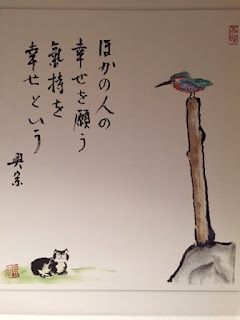 ほかの人の
幸せを願う
氣持を
幸せという